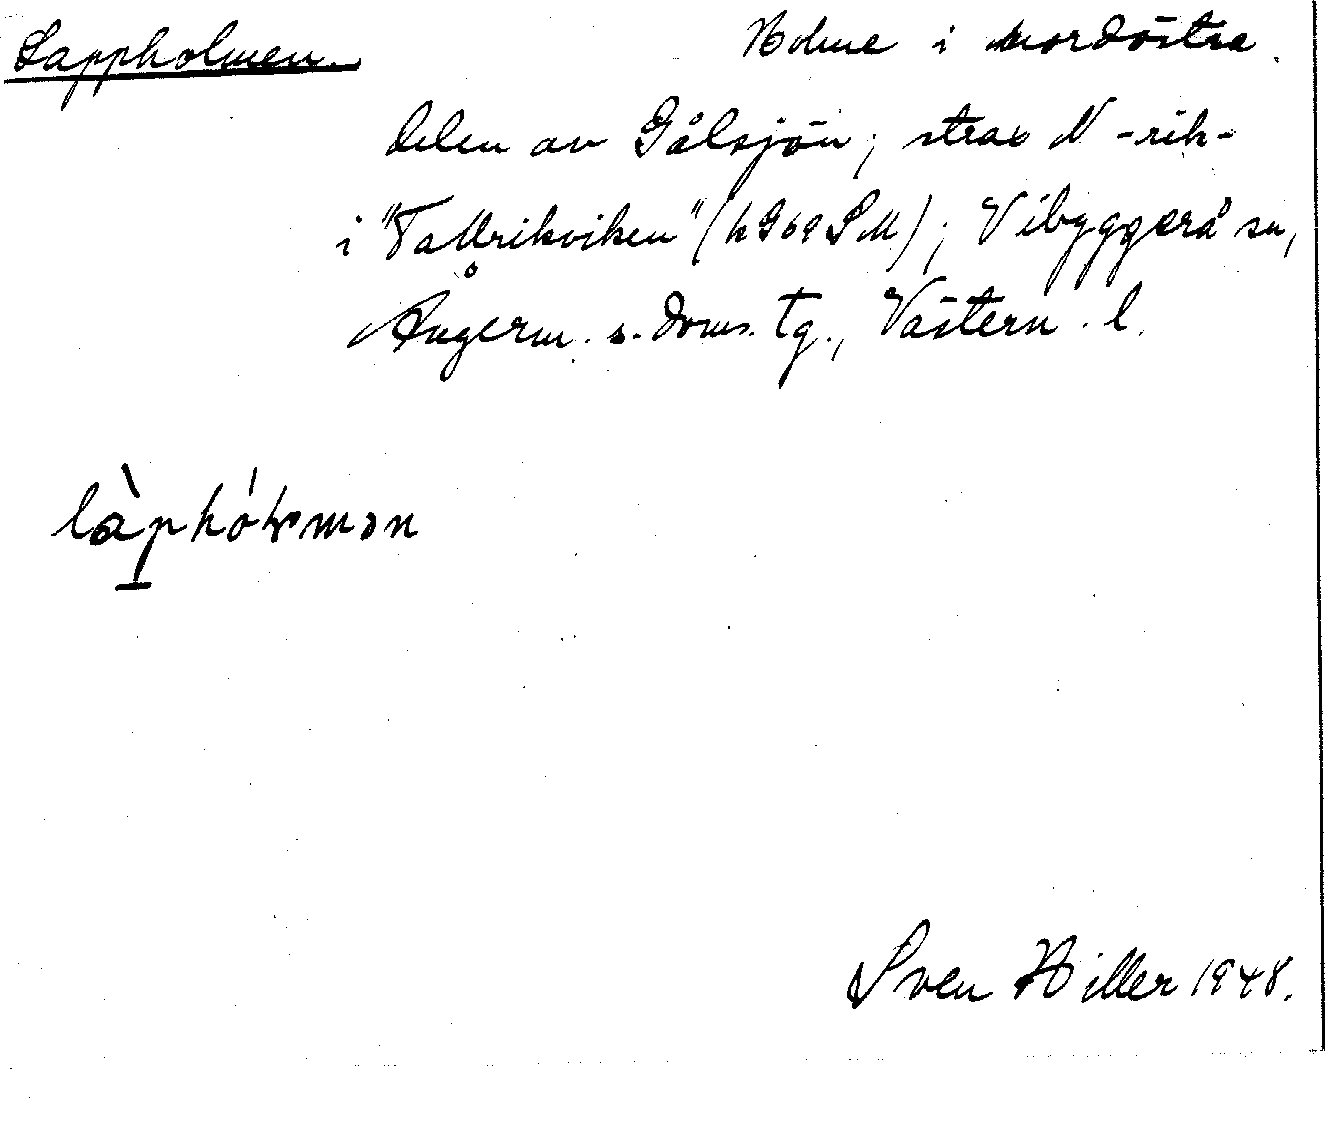 Lappholmen. Holme i nordöstra
delen av Gålsjön; strax N -rik-
i "Tallrikviken" (k969SM); Vibyggerå sn,
Ångerm. s. doms. tg., Västern. l.
làphólmən
Sven Hiller 1948.